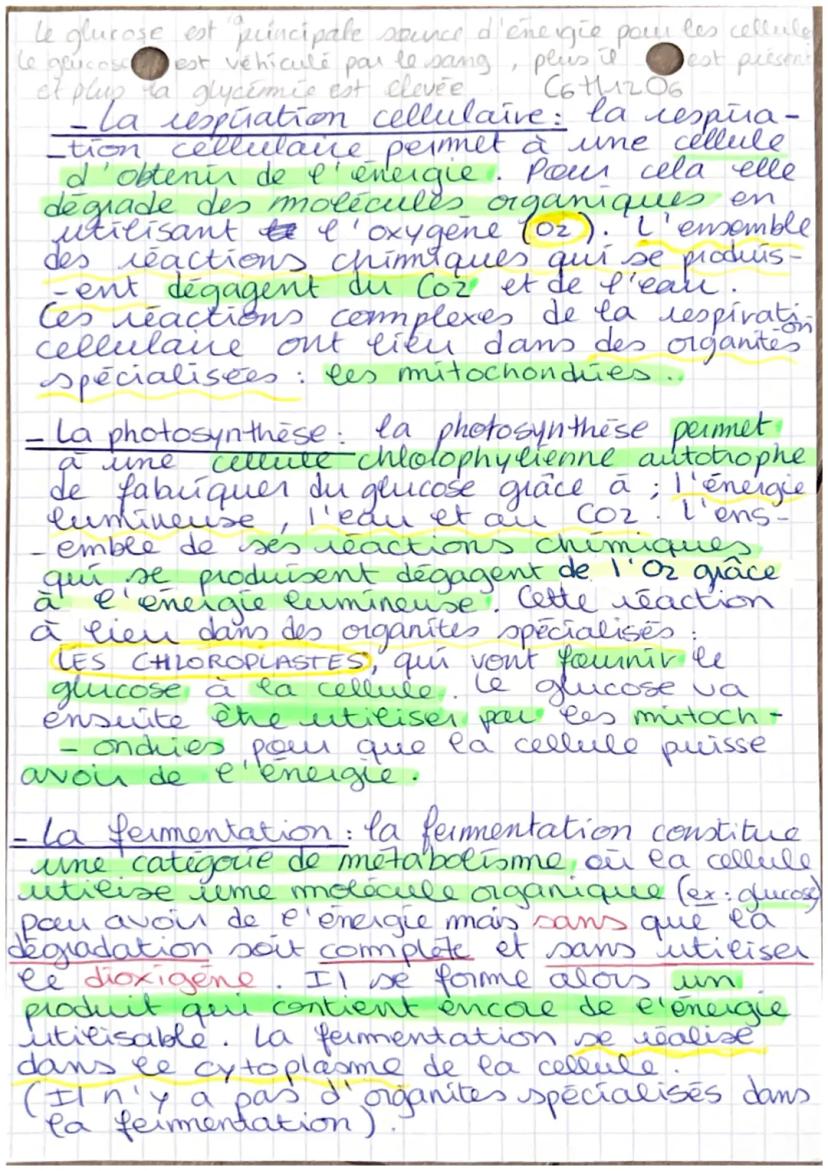 Le glucose est principale source d'énergie pour les cellules
le glucose est véhiculé par le sang, plus il est présent
et plus la glycémie est élevée C6H12O6
- La respiration cellulaire : la respira-
-tion cellulaire permet à une cellule
d'obtenir de l'énergie. Pour cela elle
dégrade des molécules organiques en
utilisant l'oxygène (O2). L'ensemble
des réactions chimiques qui se produis-
-ent dégagent du CO2 et de l'eau.
Ces réactions complexes de la respiration
cellulaire ont lieu dans des organites
spécialisées : les mitochondries.
- La photosynthèse : la photosynthèse permet
à une cellule chlolophylienne autotrophe
de fabriquer du glucose grâce à ; l'énergie
lumineuse, l'eau et au CO2. L'ens-
-emble de ses réactions chimiques
qui se produisent dégagent de l'O2 grâce
à l'énergie lumineuse. Cette réaction
à lieu dans des organites spécialisés :
LES CHLOROPLASTES, qui vont fournir le
glucose à la cellule. Le glucose va
ensuite être utiliser par les mitoch-
-ondries pour que la cellule puisse
avoir de l'énergie.
- La fermentation : la fermentation constitue
une catégorie de métabolisme où la cellule
utilise une molécule organique (ex : glucose)
pour avoir de l'énergie mais sans que la
dégradation soit complète et sans utiliser
le dioxigène. Il se forme alors un
produit qui contient encore de l'énergie
utilisable. La fermentation se réalise
dans le cytoplasme de la cellule.
(Il n'y a pas d'organites spécialisés dans
la fermentation).